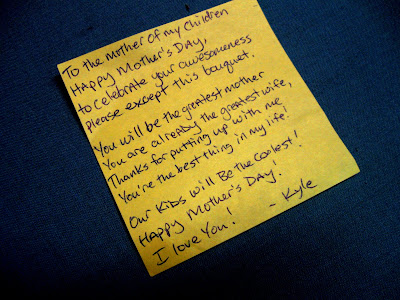 To the Mother of my children
Happy Mother's Day,
to celebrate your awesomeness
please except this bouquet.
You will be the greatest mother
You are already the greatest wife,
Thanks for putting up with me
You're the best thing in my life!
Our Kids will Be the coolest!
Happy Mother's Day!
I love You! - Kyle